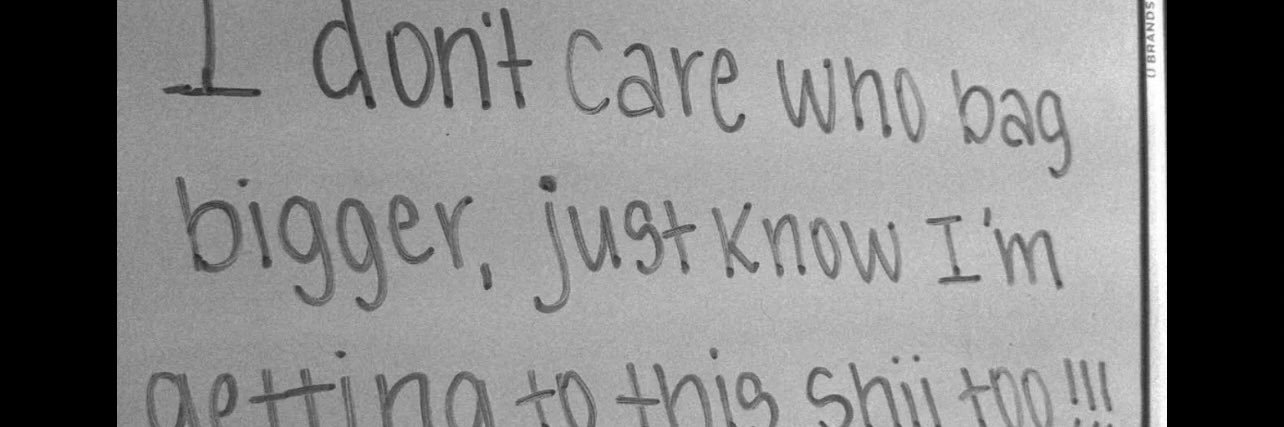 I don't care who bag
bigger, just know I'm
getting to this shii too!!!
U BRANDS